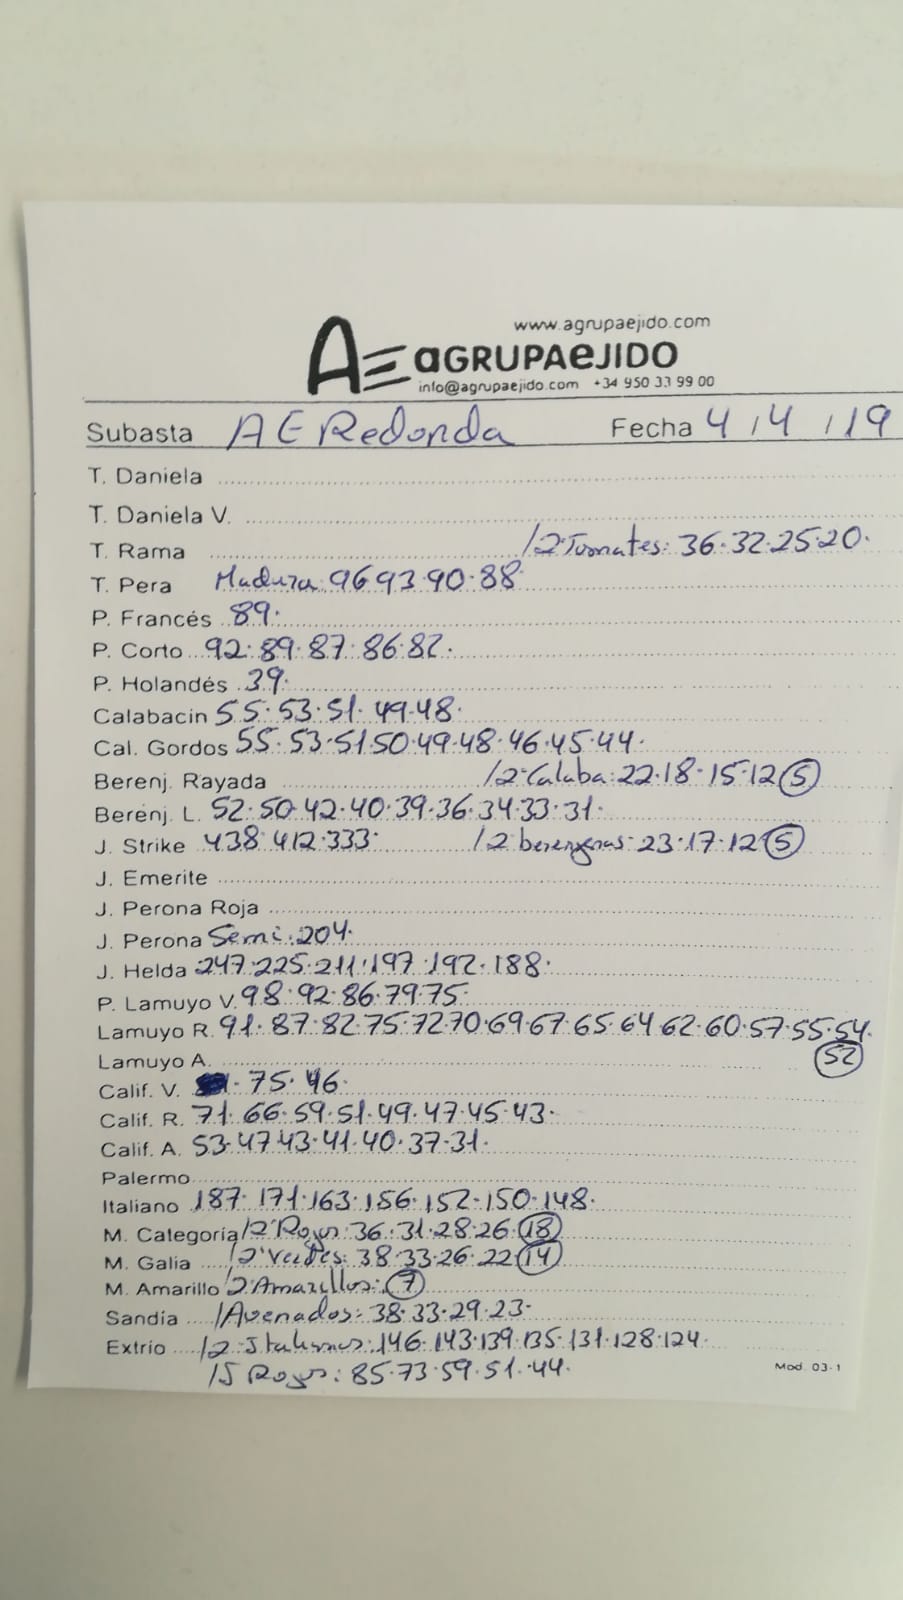 www.agrupaejido.com
AE aGRUPAeJIDO
info@agrupaejido.com +34 950 33 99 00
Subasta AE Redonda Fecha 4/4/19
T. Daniela
T. Daniela V.
T. Rama /2 Tomates: 36·32·25·20·
T. Pera Madura 96 93·90·88
P. Francés 89·
P. Corto 92·89·87·86·82·
P. Holandés 39·
Calabacin 55·53·51·49·48·
Cal. Gordos 55·53·51 50·49·48·46·45·44·
Berenj. Rayada /2 Calaba: 22·18·15·12 5
Berenj. L. 52·50·42·40·39·36·34·33·31·
J. Strike 438·412·333· /2 berengenas: 23·17·12 5
J. Emerite
J. Perona Roja
J. Perona Semi: 204·
J. Helda 247·225·211·197·192·188·
P. Lamuyo V. 98·92·86·79·75·
Lamuyo R. 91·87·82·75·72·70·69·67·65·64·62·60·57·55·54·
52
Lamuyo A.
Calif. V. 75·46·
Calif. R. 71·66·59·51·49·47·45·43·
Calif. A. 53·47·43·41·40·37·31·
Palermo
Italiano 187·171·163·156·152·150·148·
M. Categoría /2ª Rojos: 36·31·28·26· 18
M. Galia /2ª Verdes: 38·33·26·22· 14
M. Amarillo /2ª Amarillos: 7
Sandía /Avenados: 38·33·29·23·
Extrio /2 Italianos: 146·143·139·135·131·128·124·
Rojos: 85·73·59·51·44·
Mod. 03-1